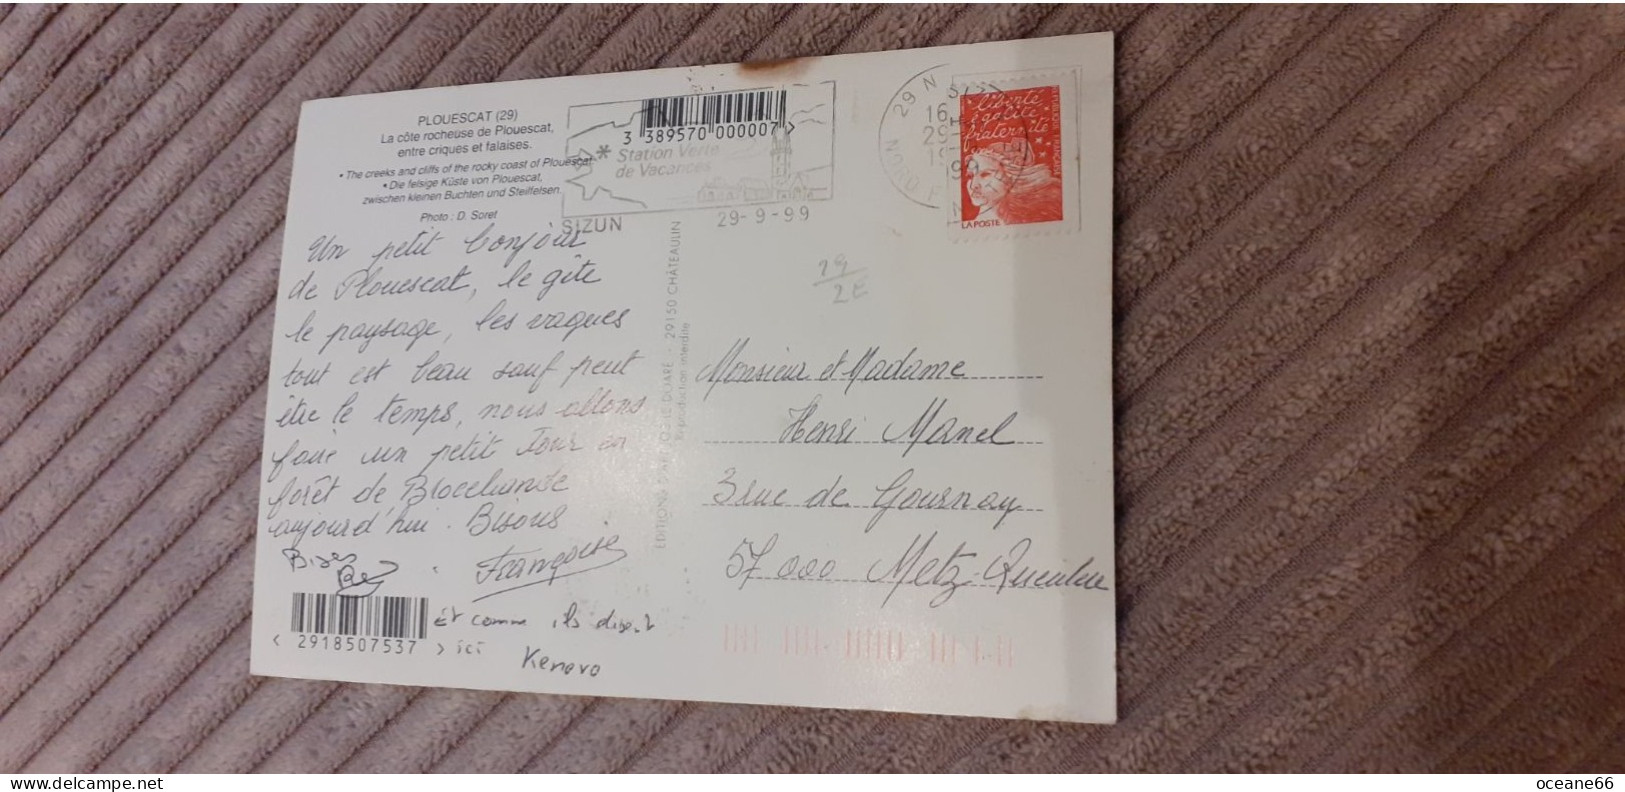 PLOUESCAT (29)
La côte rocheuse de Plouescat,
entre criques et falaises.
• The creeks and cliffs of the rocky coast of Plouescat
• Die felsige Küste von Plouescat,
zwischen kleinen Buchten und Steilfelsen.
Photo : D. Soret
Un petit bonjour
de Plouescat, le gîte
le paysage, les vagues
tout est beau sauf peut
être le temps, nous allons
faire un petit tour en
forêt de Brocéliande
aujourd'hui. Bisous
Bises
Françoise
< 2918507537 >
Et comme ils disent
ici
Kenavo
3 389570 000007 >
* Station Verte
de Vacances
SIZUN
29-9-99
29 N
16
29
liberté
égalité
fraternité
RÉPUBLIQUE FRANÇAISE
LA POSTE
29
2E
29150 CHÂTEAULIN
Reproduction interdite
Monsieur et Madame
Henri Manel
3 rue de Gournay
57000 Metz-Queuleu
oceane66